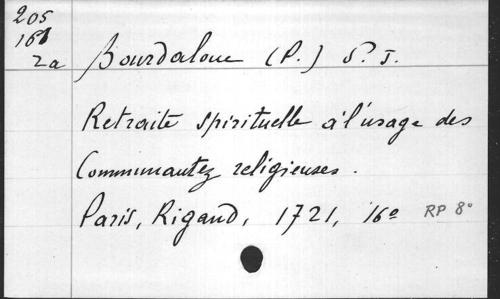 205
161
2a
Bourdaloue (P.) S. J.
Retraite spirituelle à l'usage des
Communautez religieuses.
Paris, Rigaud, 1721, 16° RP 8°